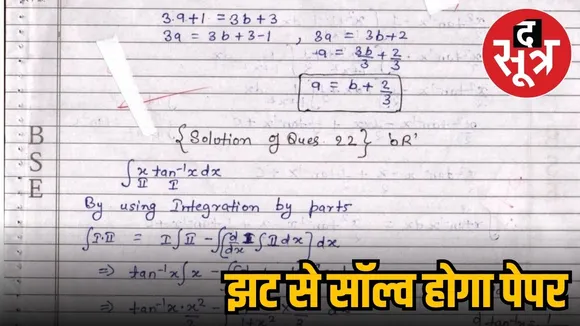 3·a+1 = 3b+3
3a = 3b+3-1 , 3a = 3b+2
a = 3b/3 + 2/3
a = b + 2/3
द
सूत्र
{Solution of Ques. 22} 'OR'
∫ x tan⁻¹x dx
II I
By using Integration by parts
∫I·II = I∫II - ∫[d/dx I ∫II dx] dx
⇒ tan⁻¹x ∫x -
⇒ tan⁻¹x · x²/2 -
B
S
E
झट से सॉल्व होगा पेपर